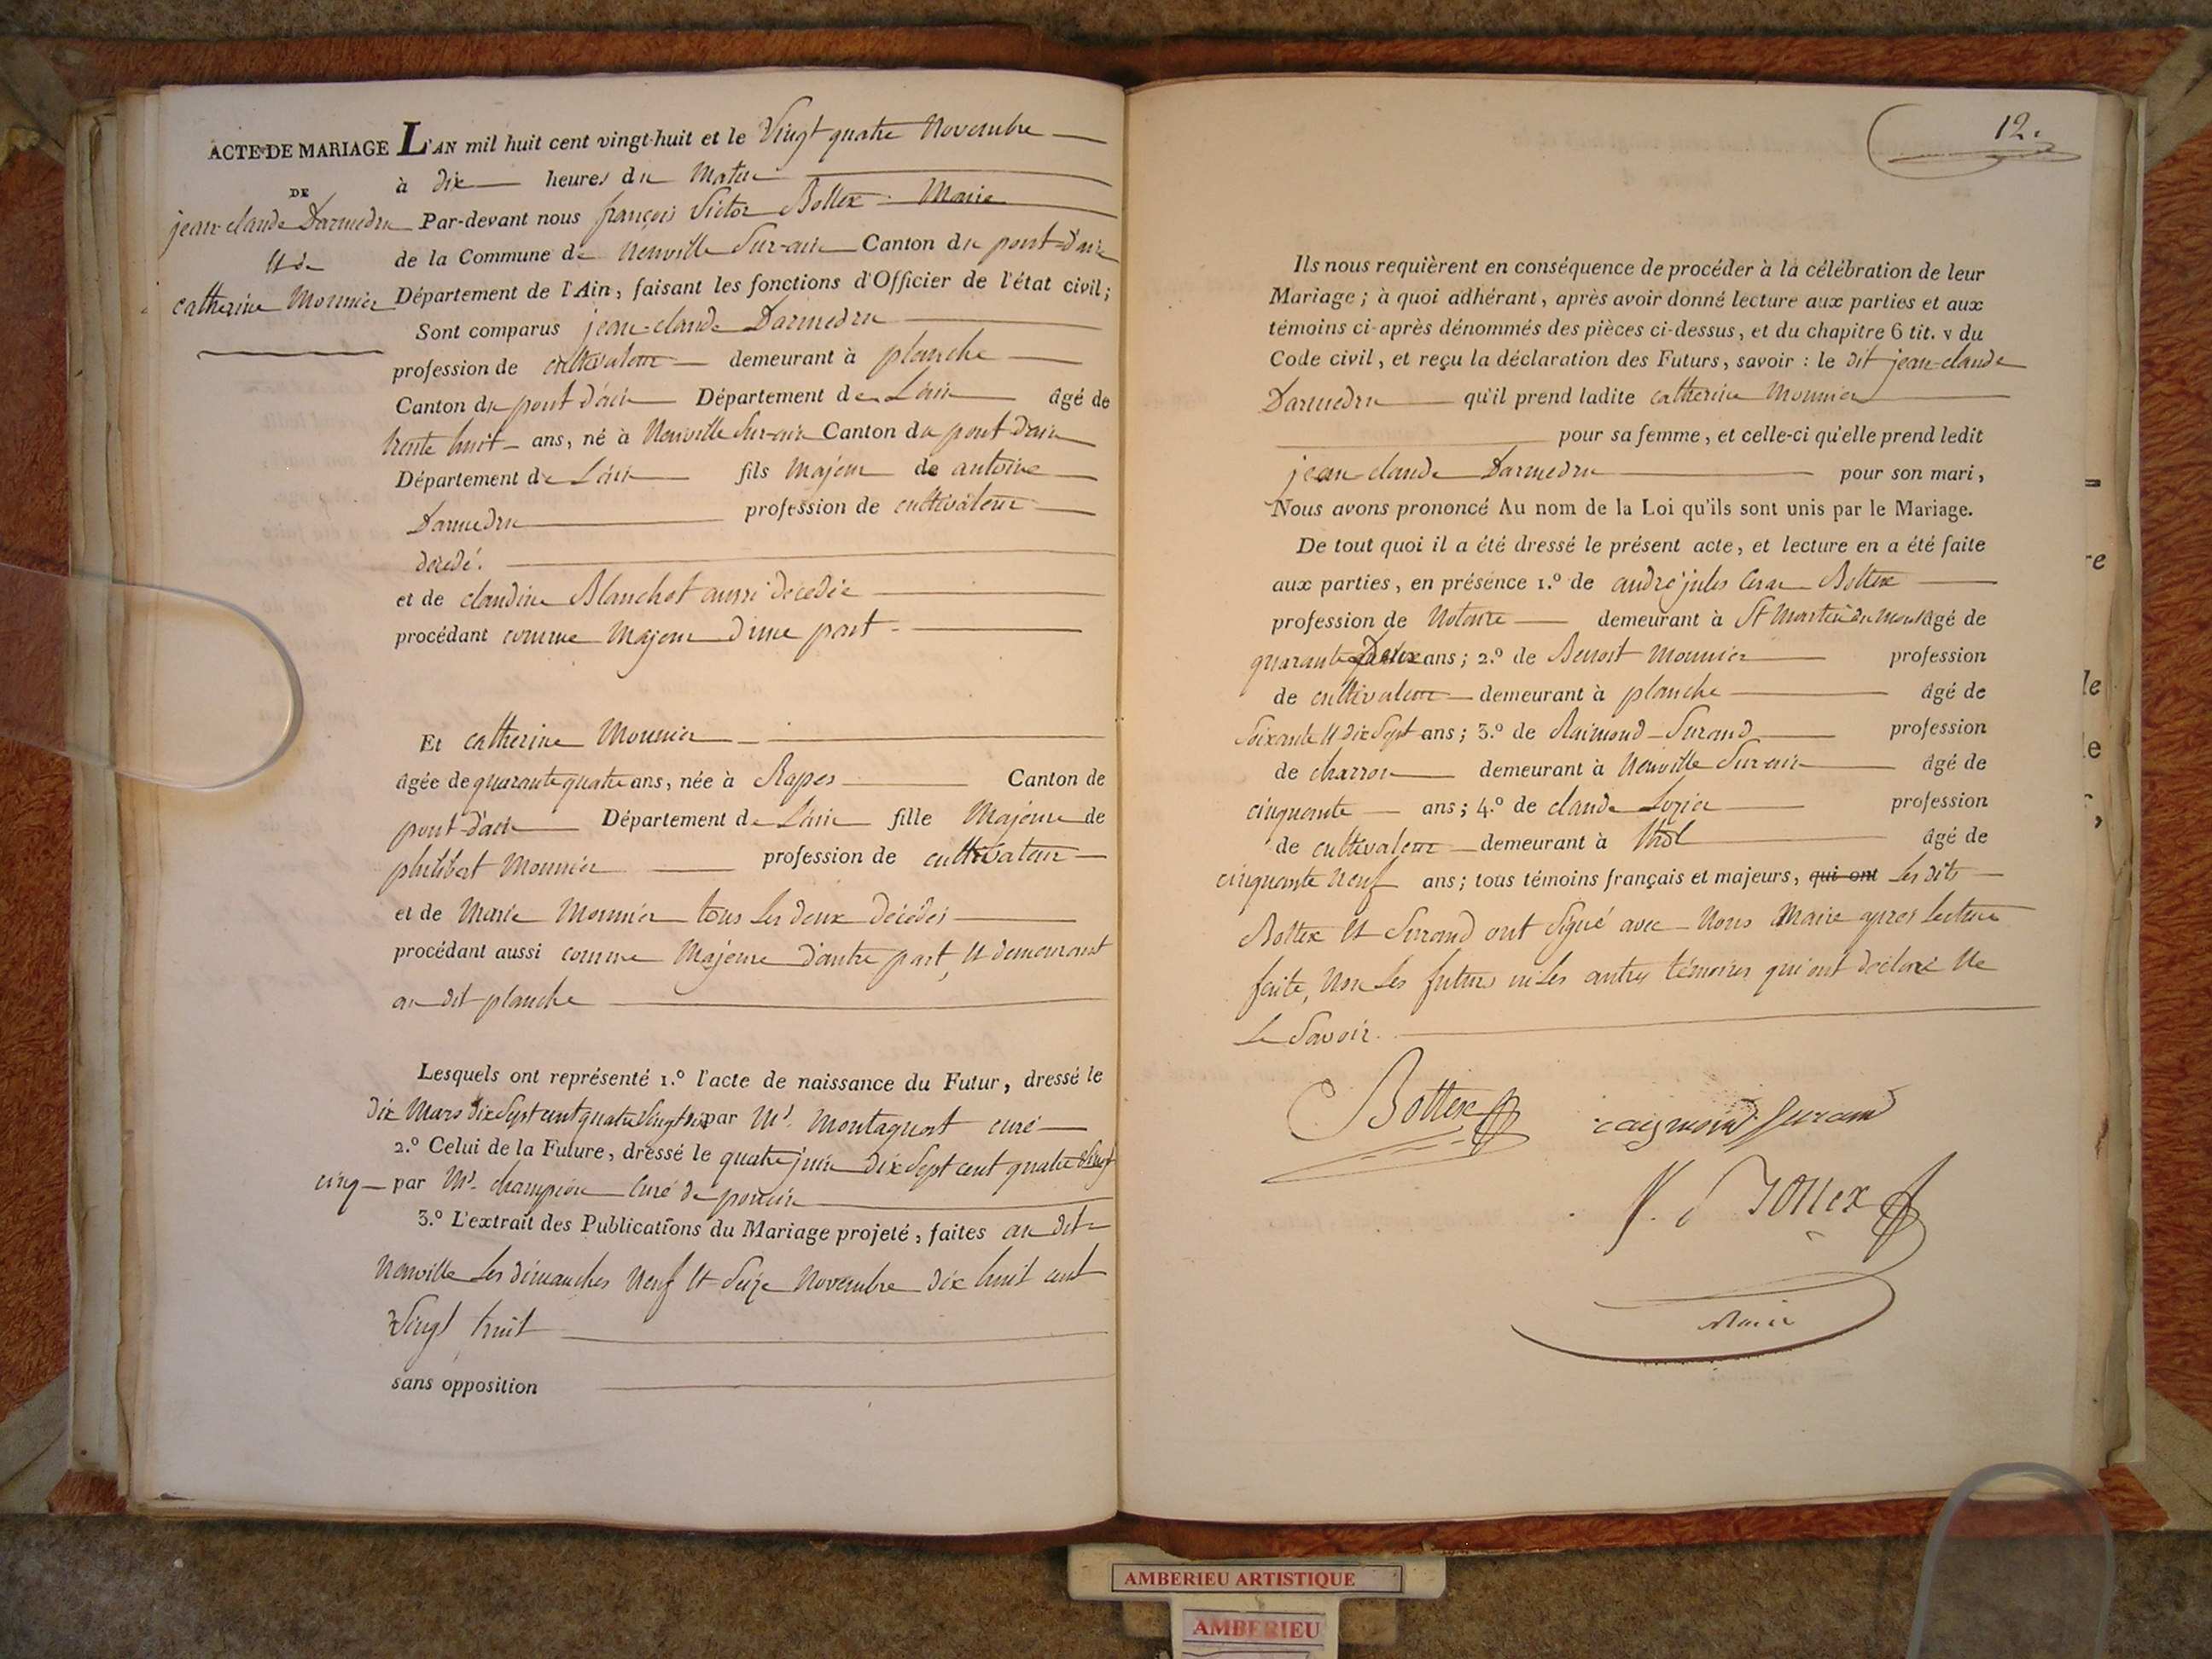 ACTE DE MARIAGE
DE
jean-claude Darmedru
et de
catherine Monnier
L'AN mil huit cent vingt-huit et le Vingt quatre Novembre
à dix heures du Matin
Par-devant nous françois Victor Bottex Maire
de la Commune de Neuville Sur-ain Canton du pont-d'ain
Département de l'Ain, faisant les fonctions d'Officier de l'état civil;
Sont comparus jean-claude Darmedru
profession de cultivateur demeurant à planche
Canton du pont d'ain Département de L'ain âgé de
trente huit ans, né à Neuville Sur-ain Canton du pont d'ain
Département de L'ain fils Majeur de antoine
Darmedru profession de cultivateur
décédé.
et de claudine Blanchet aussi décédée
procédant comme Majeur d'une part
Et catherine Monnier
âgée de quarante quatre ans, née à Rapes Canton de
pont-d'ain Département de L'ain fille Majeure de
philibert Monnier profession de cultivateur
et de Marie Monnier tous Les deux décédés
procédant aussi comme Majeure d'autre part, et demeurant
au dit planche
Lesquels ont représenté 1.º l'acte de naissance du Futur, dressé le
dix Mars dix Sept cent quatre Vingt dix par Mr. Montagnat curé
2.º Celui de la Future, dressé le quatre juin dix Sept cent quatre Vingt
cinq par Mr. champion Curé de poncin
3.º L'extrait des Publications du Mariage projeté, faites au dit
Neuville Les dimanches Neuf et Seize Novembre dix huit cent
Vingt huit
sans opposition
12.
Ils nous requièrent en conséquence de procéder à la célébration de leur
Mariage; à quoi adhérant, après avoir donné lecture aux parties et aux
témoins ci-après dénommés des pièces ci-dessus, et du chapitre 6 tit. v du
Code civil, et reçu la déclaration des Futurs, savoir: le dit jean-claude
Darmedru qu'il prend ladite catherine Monnier
pour sa femme, et celle-ci qu'elle prend ledit
jean claude Darmedru pour son mari,
Nous avons prononcé Au nom de la Loi qu'ils sont unis par le Mariage.
De tout quoi il a été dressé le présent acte, et lecture en a été faite
aux parties, en présence 1.º de andré jules César Bottex
profession de Notaire demeurant à St Martin du mont âgé de
quarante Deux ans; 2.º de Benoit Monnier profession
de cultivateur demeurant à planche âgé de
Soixante et dix Sept ans; 3.º de Raimond Surand profession
de charron demeurant à Neuville Sur-ain âgé de
cinquante ans; 4.º de claude Lozier profession
de cultivateur demeurant à Thol âgé de
cinquante Neuf ans; tous témoins français et majeurs, qui ont Les dits
Bottex et Surand ont Signé avec Nous Maire après Lecture
faite, Non Les futurs ni Les autres témoins qui ont déclaré Ne
Le Savoir.
Bottex
raymond Surand
V. Bottex
Maire
re
le
le
AMBERIEU ARTISTIQUE
AMBERIEU